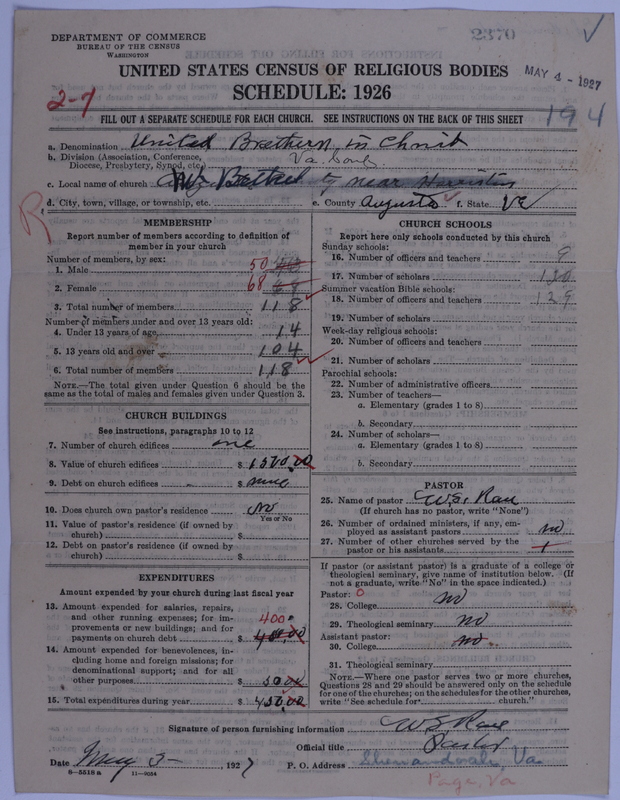 2370
DEPARTMENT OF COMMERCE
BUREAU OF THE CENSUS
WASHINGTON
UNITED STATES CENSUS OF RELIGIOUS BODIES
MAY 4 - 1927
SCHEDULE: 1926
2-7
194
FILL OUT A SEPARATE SCHEDULE FOR EACH CHURCH. SEE INSTRUCTIONS ON THE BACK OF THIS SHEET
a. Denomination United Brethern in Christ
b. Division (Association, Conference, Diocese, Presbytery, Synod, etc.) Va.
c. Local name of church Bethel near
d. City, town, village, or township, etc.
e. County Augusta f. State Va
R
MEMBERSHIP
Report number of members according to definition of member in your church
Number of members, by sex:
1. Male 50
2. Female 68
3. Total number of members 118
Number of members under and over 13 years old:
4. Under 13 years of age 14
5. 13 years old and over 104
6. Total number of members 118
NOTE.—The total given under Question 6 should be the same as the total of males and females given under Question 3.
CHURCH BUILDINGS
See instructions, paragraphs 10 to 12
7. Number of church edifices one
8. Value of church edifices $ 1500.00
9. Debt on church edifices $ none
10. Does church own pastor's residence No
Yes or No
11. Value of pastor's residence (if owned by church) $
12. Debt on pastor's residence (if owned by church) $
EXPENDITURES
Amount expended by your church during last fiscal year
13. Amount expended for salaries, repairs, and other running expenses; for improvements or new buildings; and for payments on church debt $ 400
14. Amount expended for benevolences, including home and foreign missions; for denominational support; and for all other purposes $ 50.00
15. Total expenditures during year $ 450.00
CHURCH SCHOOLS
Report here only schools conducted by this church
Sunday schools:
16. Number of officers and teachers 9
17. Number of scholars 130
Summer vacation Bible schools:
18. Number of officers and teachers 129
19. Number of scholars
Week-day religious schools:
20. Number of officers and teachers
21. Number of scholars
Parochial schools:
22. Number of administrative officers
23. Number of teachers—
a. Elementary (grades 1 to 8)
b. Secondary
24. Number of scholars—
a. Elementary (grades 1 to 8)
b. Secondary
PASTOR
25. Name of pastor W.S. Rau
(If church has no pastor, write "None")
26. Number of ordained ministers, if any, employed as assistant pastors no
27. Number of other churches served by the pastor or his assistants
If pastor (or assistant pastor) is a graduate of a college or theological seminary, give name of institution below. (If not a graduate, write "No" in the space indicated.)
Pastor: 0
28. College no
29. Theological seminary no
Assistant pastor:
30. College no
31. Theological seminary
NOTE.—Where one pastor serves two or more churches, Questions 28 and 29 should be answered only on the schedule for one of the churches; on the schedules for the other churches, write "See schedule for ........ church."
Signature of person furnishing information W S Rau
Official title Pastor
Date May 3- 1927
P. O. Address Shenandoah, Va
Page, Va
8-5518 a 11-9054